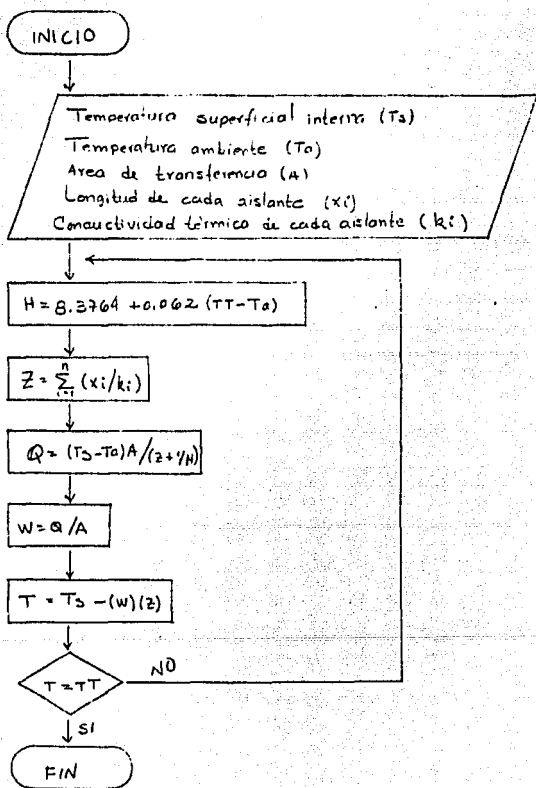 INICIO
Temperatura superficial interna (Ts)
Temperatura ambiente (Ta)
Area de transferencia (A)
Longitud de cada aislante (xi)
Conductividad térmico de cada aislante (ki)
H = 8.3764 + 0.062 (TT - Ta)
Z = n∑i=1 (xi/ki)
Q = (Ts - Ta) A / (Z + 1/H)
W = Q / A
T = Ts - (W)(Z)
T = TT
NO
SI
FIN